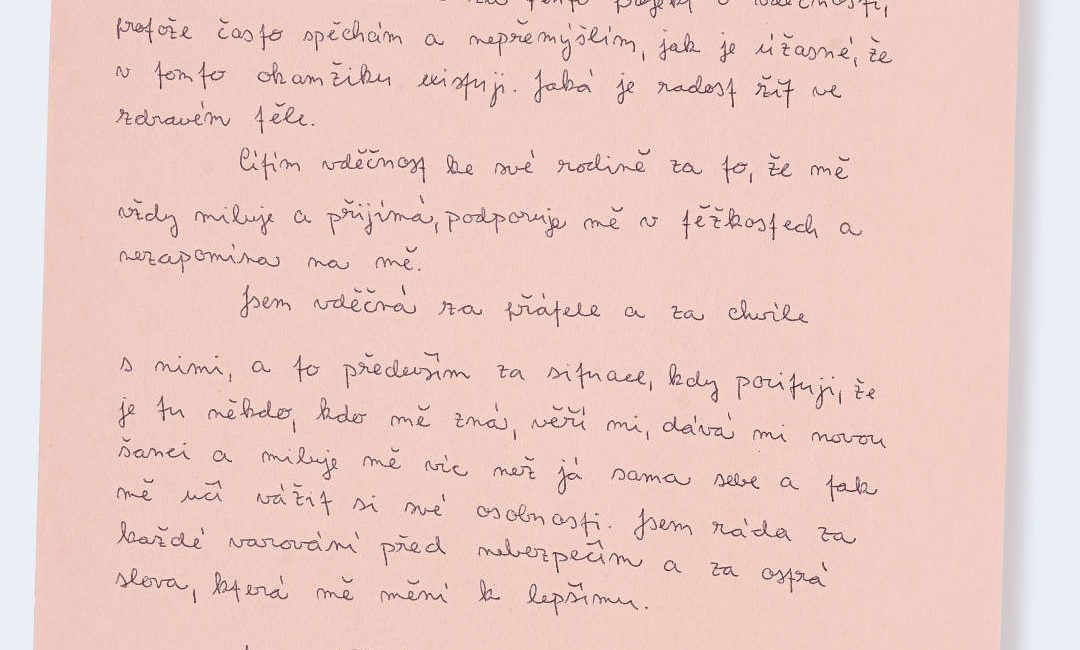 za tento projekt o vděčnosti,
protože často spěchám a nepřemýšlím, jak je úžasné, že
v tomto okamžiku existuji. Jaká je radost žít ve
zdravém těle.
Cítím vděčnost ke své rodině za to, že mě
vždy miluje a přijímá, podporuje mě v těžkostech a
nezapomíná na mě.
Jsem vděčná za přátele a za chvíle
s nimi, a to především za situace, kdy pociťuji, že
je tu někdo, kdo mě zná, věří mi, dává mi novou
šanci a miluje mě víc než já sama sebe a tak
mě učí vážit si své osobnosti. Jsem ráda za
každé varování před nebezpečím a za ostrá
slova, která mě mění k lepšímu.